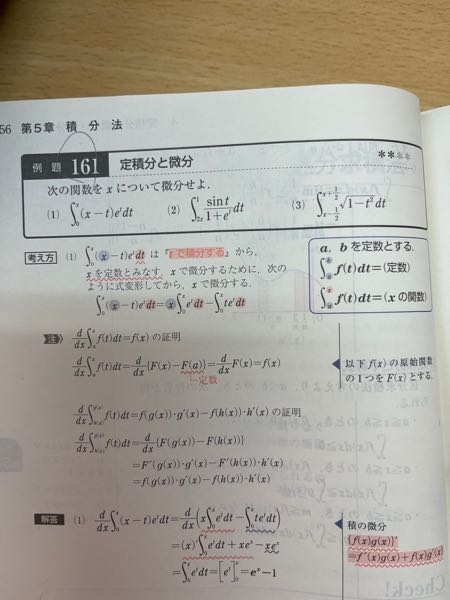 56 第5章 積分法
例題 161 定積分と微分 ****
次の関数を x について微分せよ.
(1) ∫₀ˣ(x−t)eᵗdt (2) ∫₂ₓ¹ sin t/(1+eᵗ) dt (3) ∫_{x−1/2}^{x+1/2} √(1−t²) dt
考え方 (1) ∫₀ˣ(x−t)eᵗdt は『t で積分する』から,
x を定数とみなす. x で微分するために, 次の
ように式変形してから, x で微分する.
∫₀ˣ(x−t)eᵗdt=x∫₀ˣeᵗdt−∫₀ˣteᵗdt
a, b を定数とする.
∫ₐᵇ f(t)dt=(定数)
∫ₐˣ f(t)dt=(x の関数)
注 d/dx ∫ₐˣ f(t)dt=f(x) の証明
d/dx ∫ₐˣ f(t)dt=d/dx {F(x)−F(a)}=d/dx F(x)=f(x)
定数
以下 f(x) の原始関数
の1つを F(x) とする.
d/dx ∫_{h(x)}^{g(x)} f(t)dt=f(g(x))·g′(x)−f(h(x))·h′(x) の証明
d/dx ∫_{h(x)}^{g(x)} f(t)dt=d/dx {F(g(x))−F(h(x))}
=F′(g(x))·g′(x)−F′(h(x))·h′(x)
=f(g(x))·g′(x)−f(h(x))·h′(x)
解答 (1) d/dx ∫₀ˣ(x−t)eᵗdt=d/dx (x∫₀ˣeᵗdt−∫₀ˣteᵗdt)
=(x)′∫₀ˣeᵗdt+xeˣ−xeˣ
=∫₀ˣeᵗdt=[eᵗ]₀ˣ=eˣ−1
積の微分
{f(x)g(x)}′
=f′(x)g(x)+f(x)g′(x)
Check!